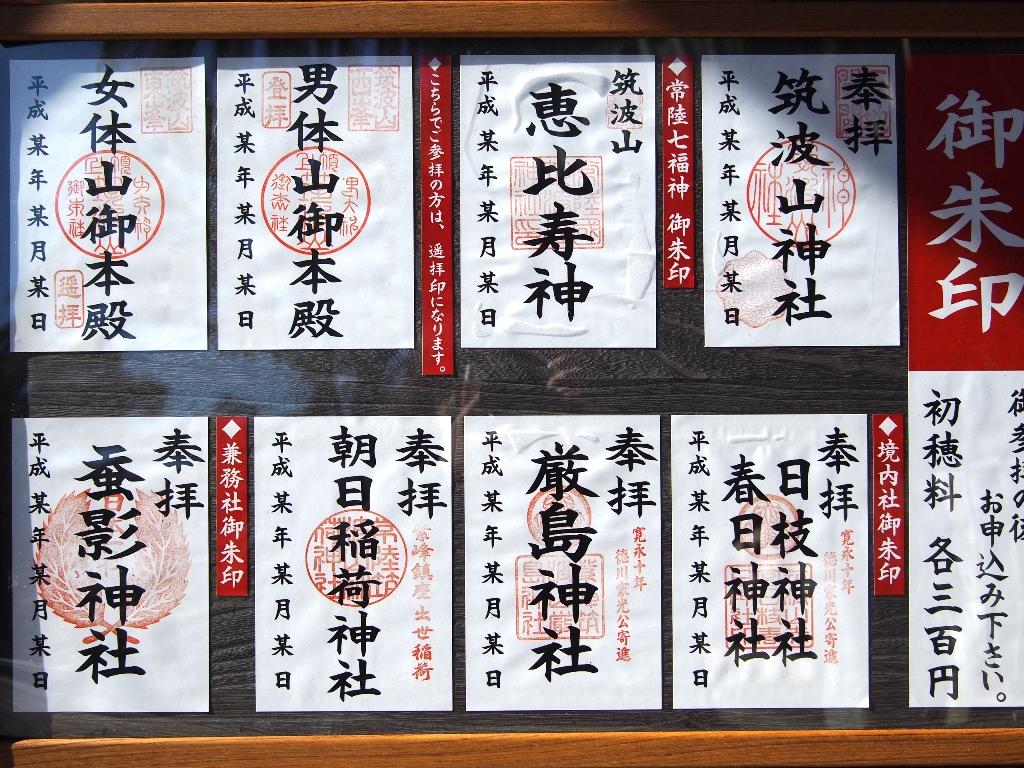 御朱印
御参拝の後
お申込み下さい。
初穂料 各三百円
奉拝
筑波山神社
平成某年某月某日
◆常陸七福神 御朱印
筑波山
恵比寿神
平成某年某月某日
◆こちらでご参拝の方は、遥拝印になります。
筑波山
西峯
登拝
男体山御本殿
平成某年某月某日
筑波山
東峯
女体山御本殿
平成某年某月某日
遥拝
◆境内社御朱印
奉拝
寛永十年
徳川家光公寄進
日枝神社
春日神社
平成某年某月某日
奉拝
寛永十年
徳川家光公寄進
厳島神社
平成某年某月某日
奉拝
紫峰鎮座出世稲荷
朝日稲荷神社
平成某年某月某日
◆兼務社御朱印
奉拝
蚕影神社
平成某年某月某日